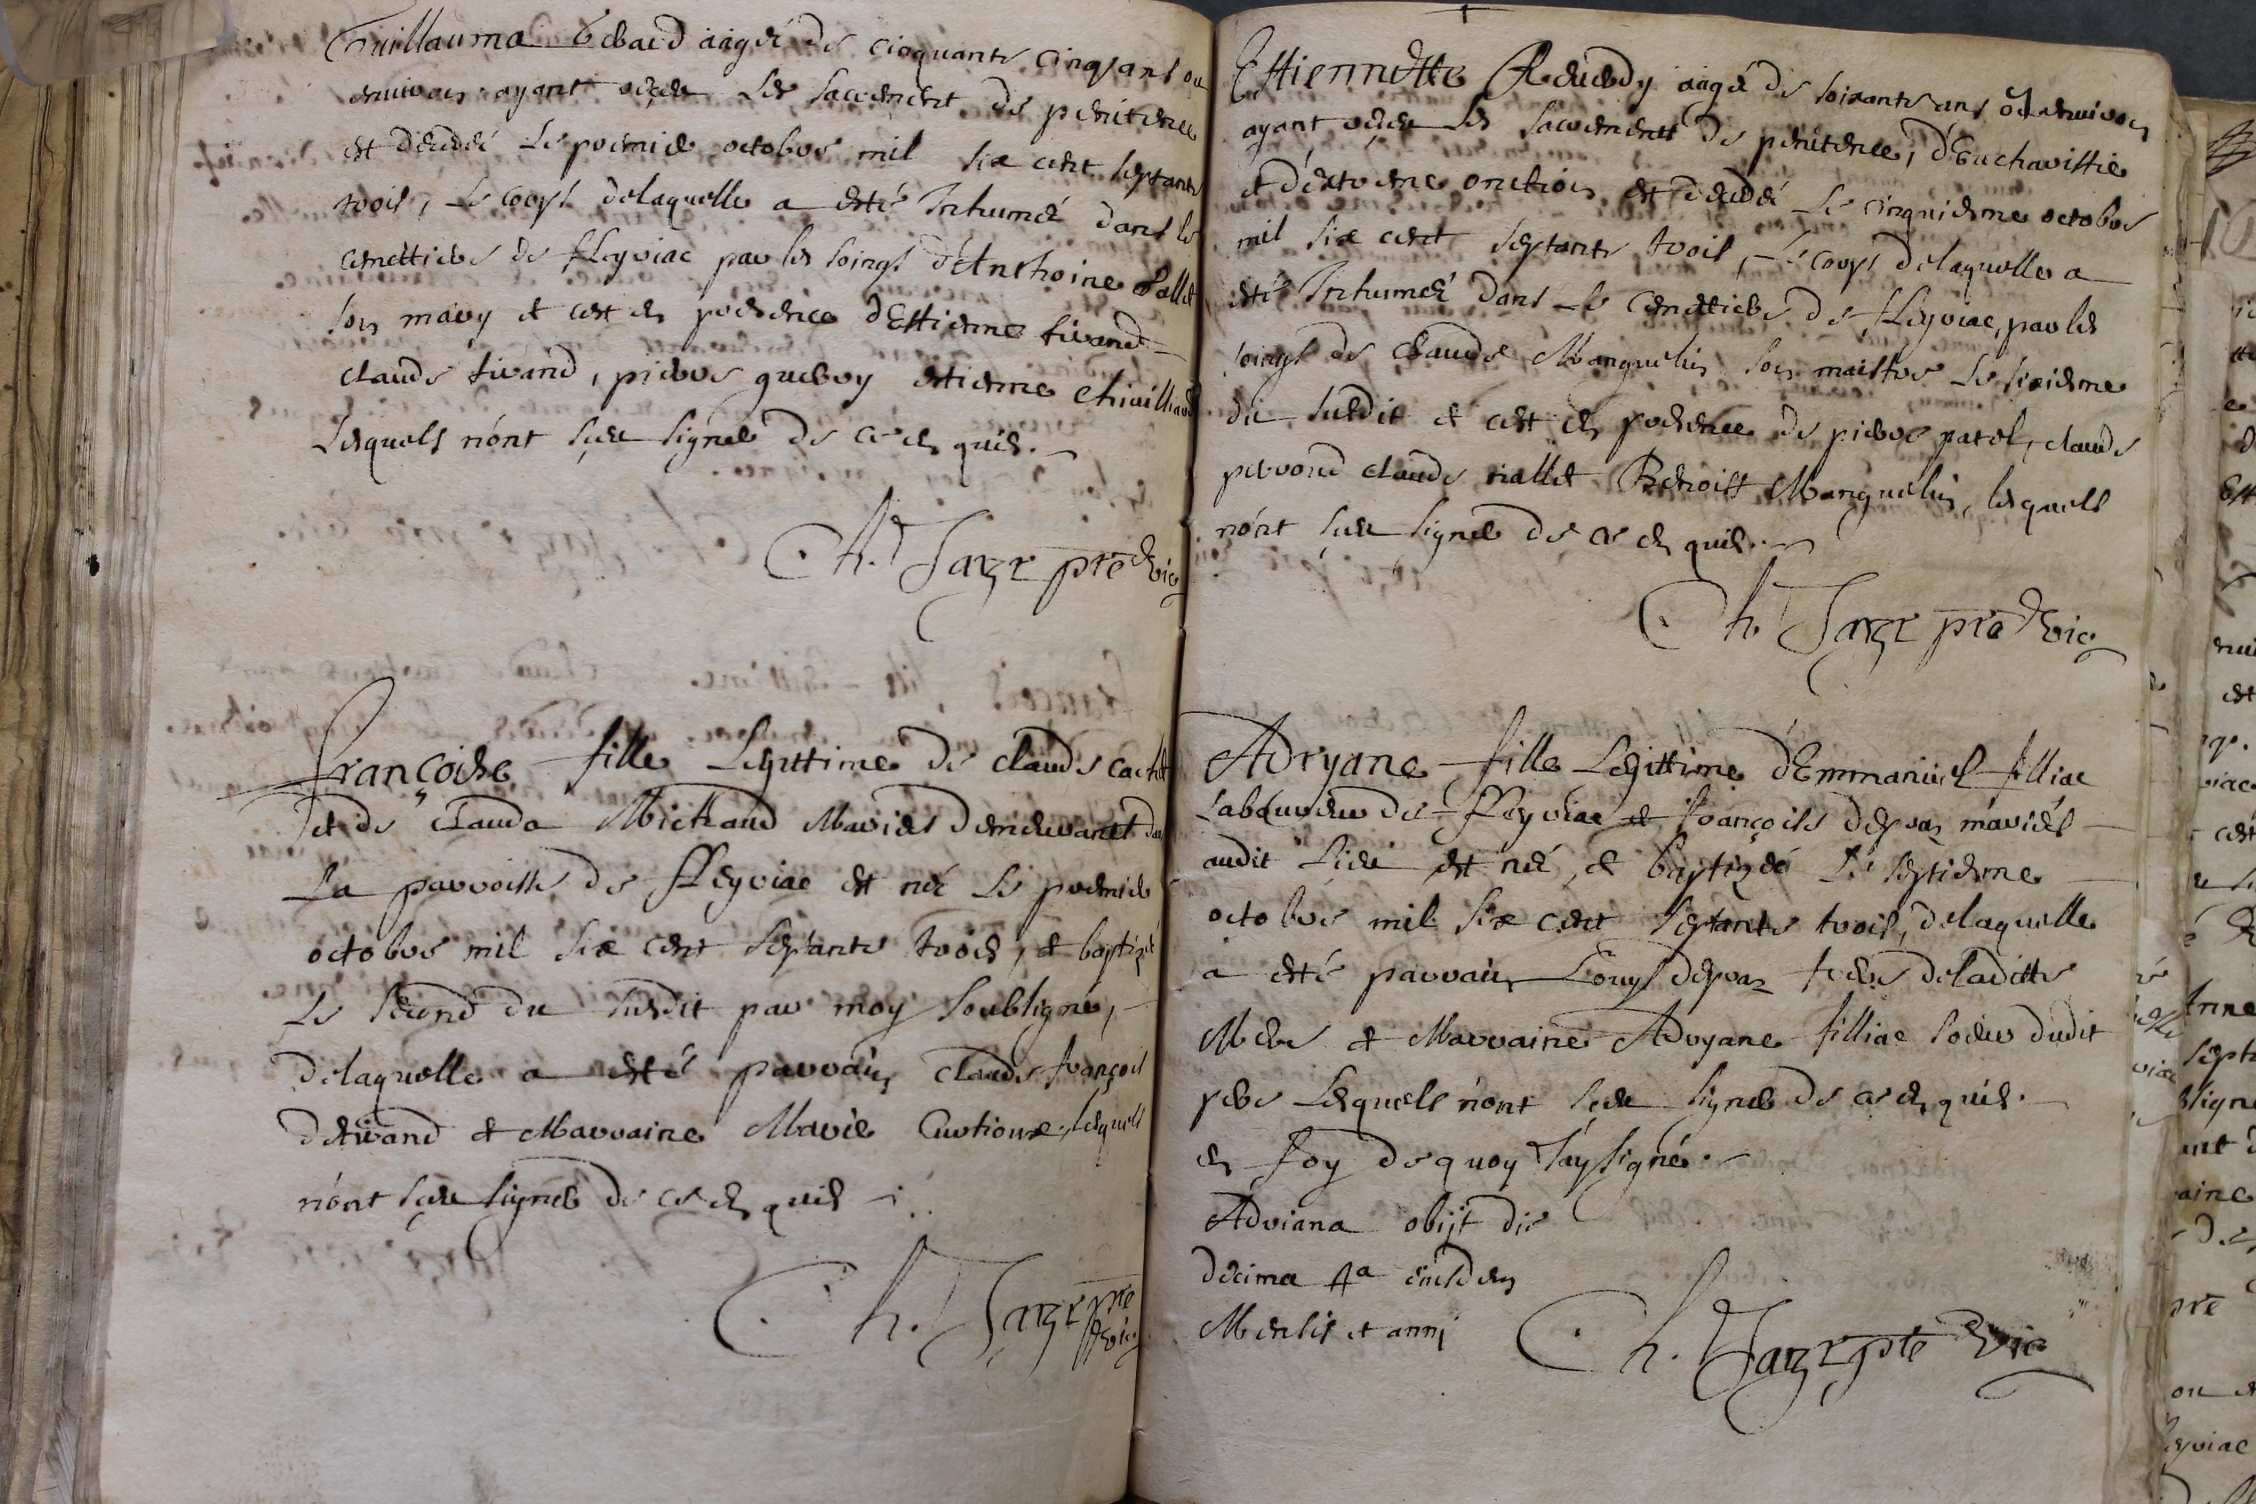 Guillauma aagée de cinquante cinq ans ou
environ ayant reçeu les sacrement de penitence
est decedée le premier octobre mil six cent septante
trois, le corps delaquelle a esté Inhumée dans le
cemettiere de ffleyriac par les soings d'Anthoine Pallet
son mary et cest en presence d'Estienne tirand
claude tirand, pierre guerry estienne chivilliard
lesquels n'ont sçeu signer de ce en quis.
Ch. pre & vic
Françoise fille Legittime de claude cachet
et de Clauda Michaud Mariés demeurant dans
La parroisse de ffleyriac est née le premier
octobre mil six cent septante trois, et baptizée
Le second du susdit par moy soubsigné,
delaquelle a esté parrain claude françois
detirand et Marraine Marie lesquels
n'ont sçeu signer de ce en quis
Ch. pre & vic
Estiennette aagée de soixante ans ou environ
ayant reçeu les sacrements de penitence, d'Eucharistie
et d'extreme onction est decedée le cinquiesme octobre
mil six cent septante trois, le corps delaquelle a
esté Inhumée dans le cemettiere de ffleyriac, par les
soings de Claude Manguelin son maistre le sixiesme
du susdit et cest en presence de pierre patel, claude
perrond claude niallet Benoist Manguelin, lesquels
n'ont sçeu signer de ce en quis.
Ch. pre & vic
Adryane fille Legittime d'Emmanuel filliac
Laboureur de ffleyriac et françoise mariés
audit lieu est née, et baptizée le septiesme
octobre mil six cent septante trois, delaquelle
a esté parrain Louys frere deladitte
Mere et Marraine Adryane filliac soeur dudit
pere Lesquels n'ont sçeu signer de ce en quis.
en foy de quoy J'ay signé.
Adriana obijt die
decima 4a eiusdem
Mensis et anni
Ch. pre & vic